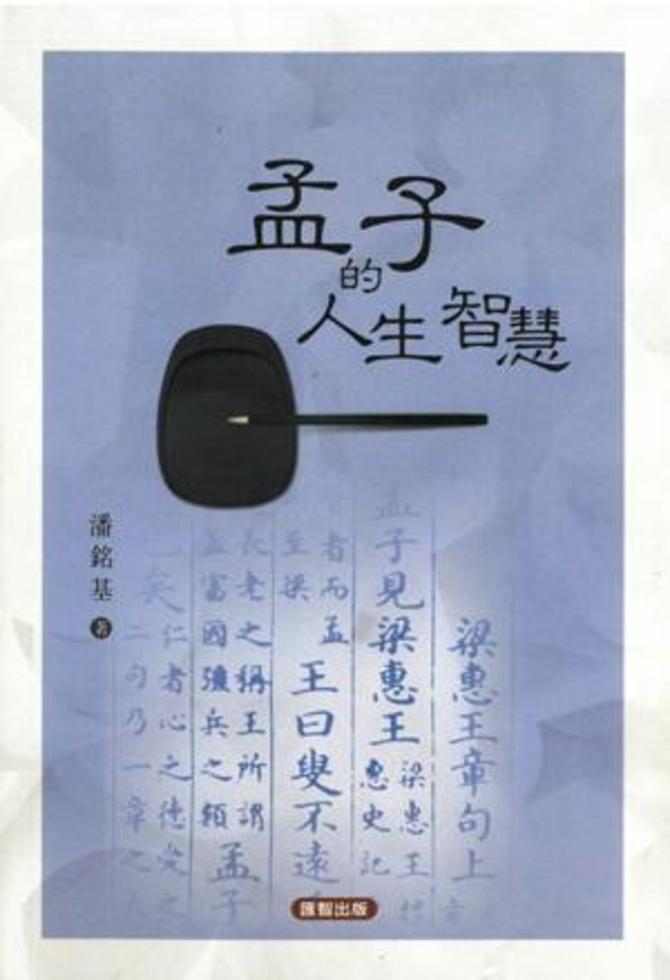 孟子
的
人生智慧
潘銘基
著
梁惠王章句上
孟子見梁惠王
梁惠王
惠史記
王曰叟不遠
者而孟
至梁
長老之稱王所謂
富國彊兵之類
孟子
仁者心之德愛之
矣
二句乃一章之大
匯智出版